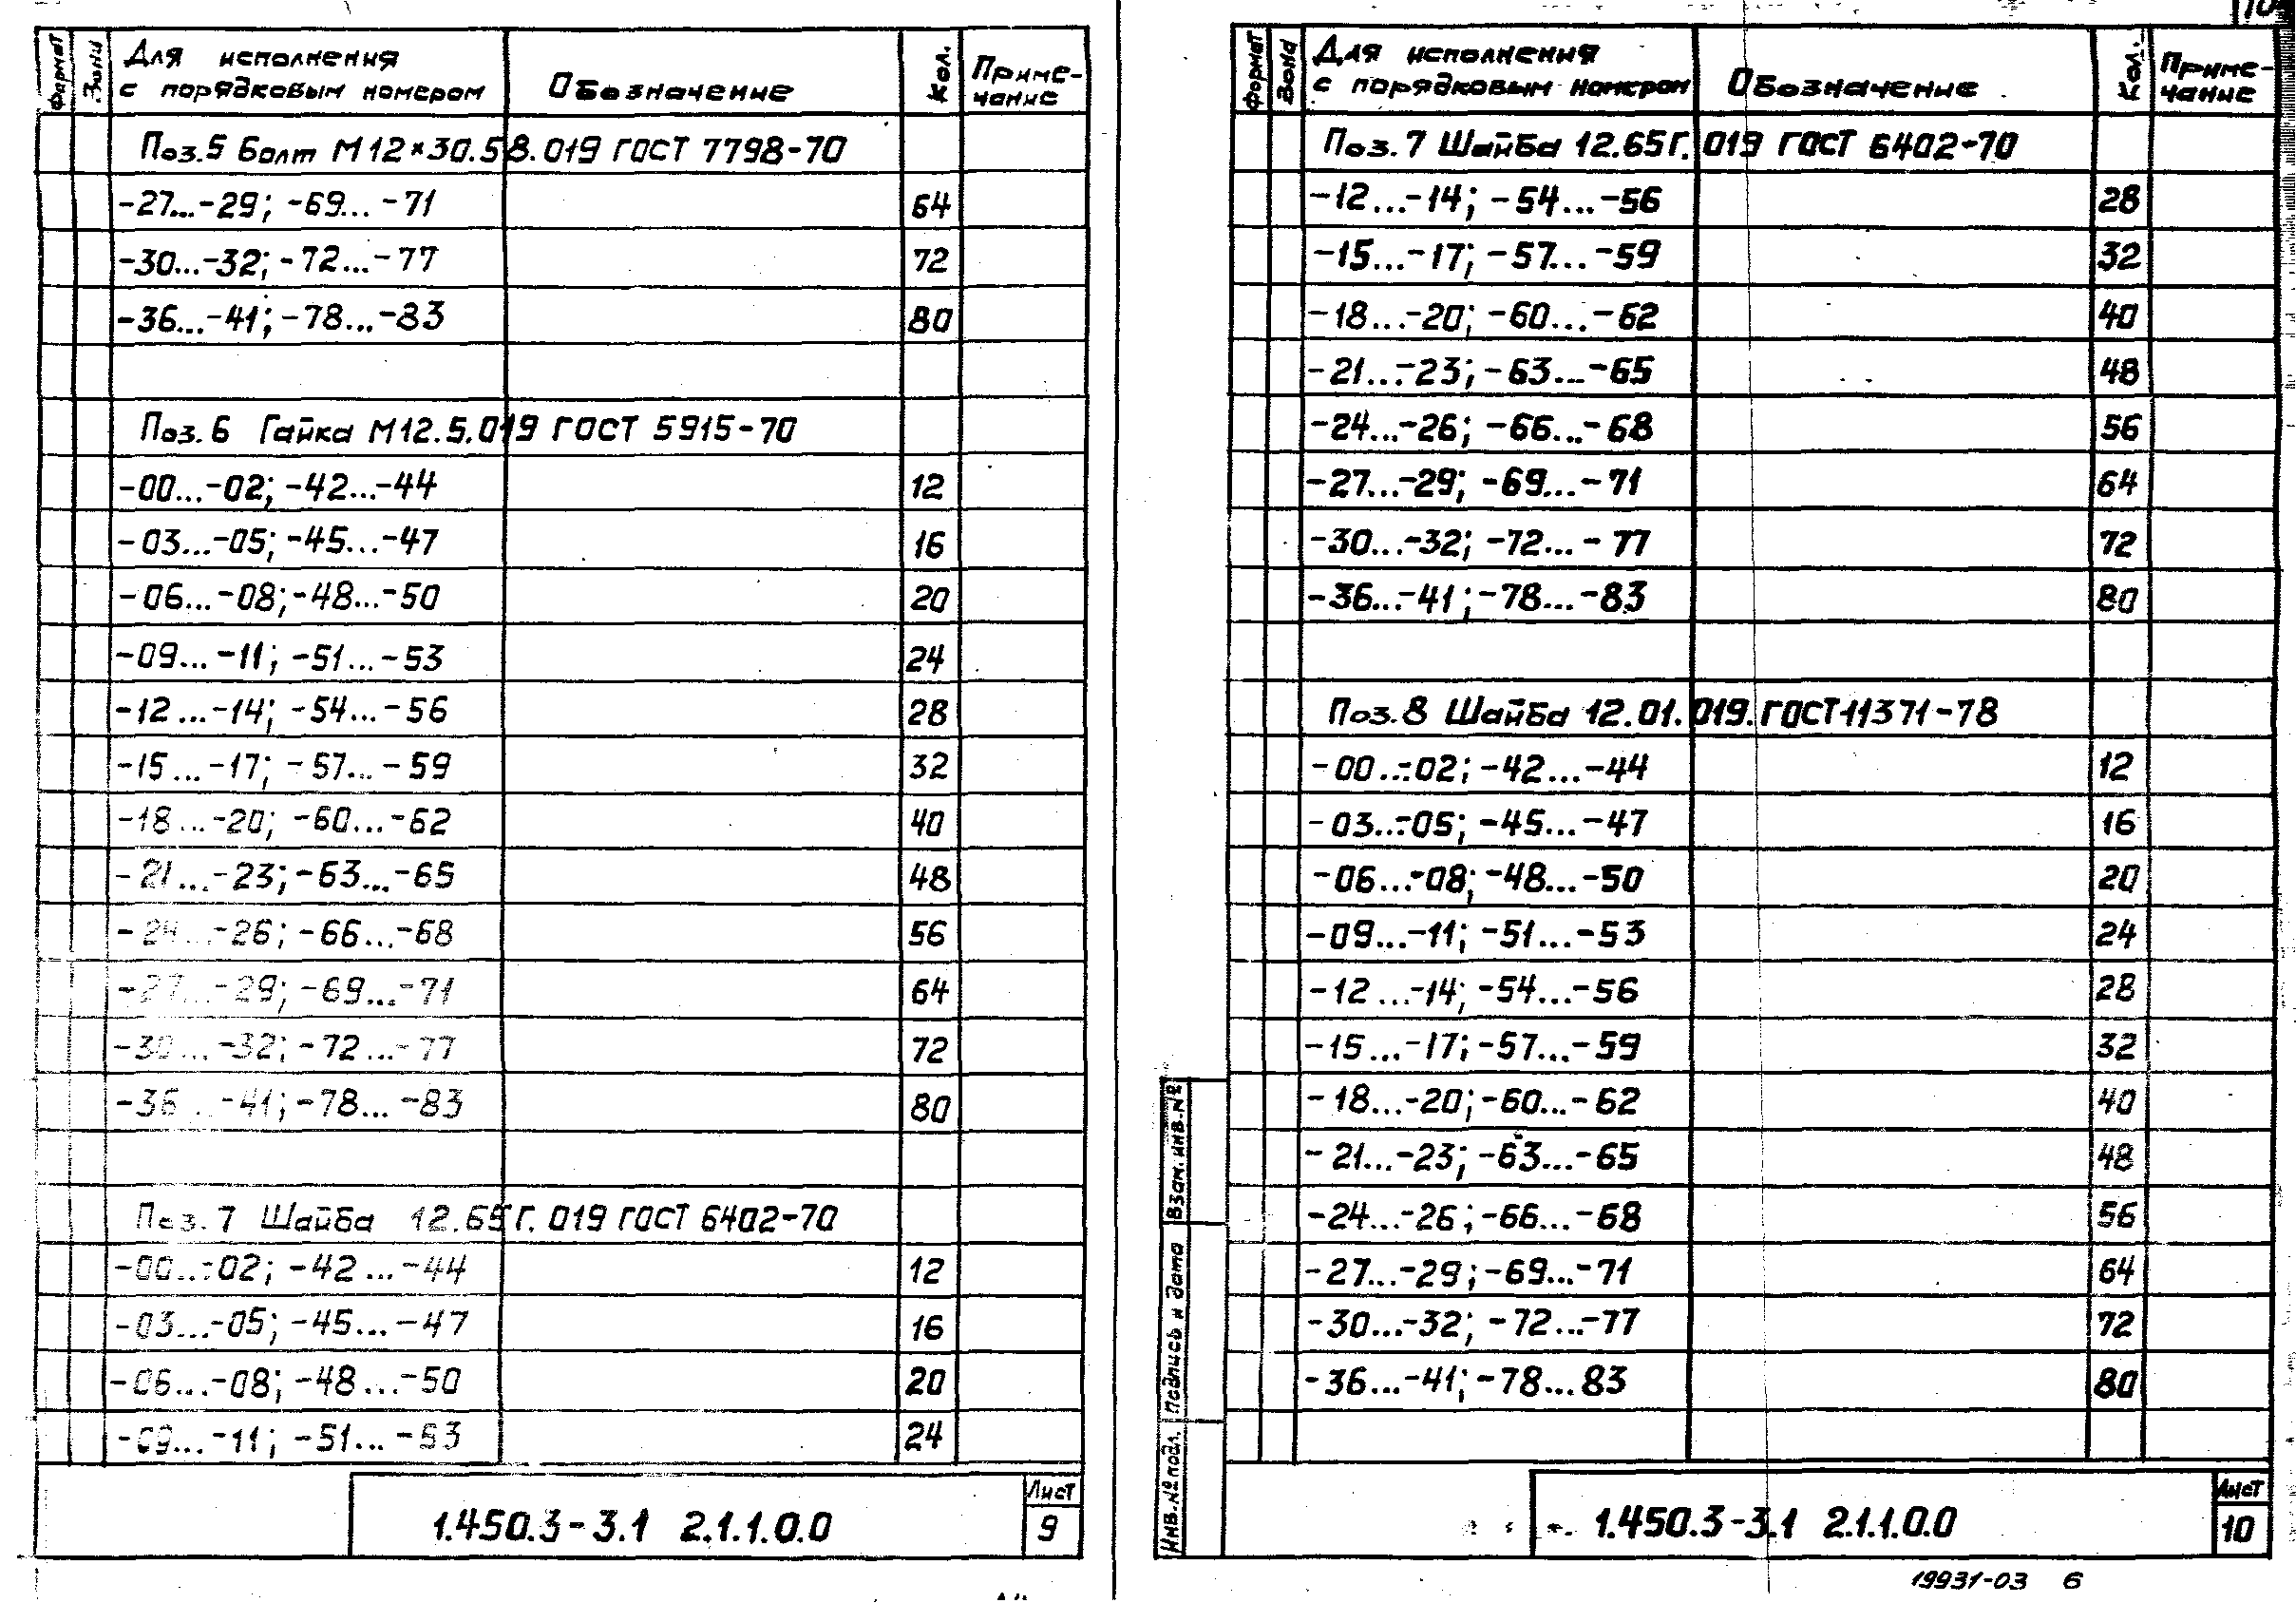 Формат Зона Для исполнения с порядковым номером Обозначение Кол. Приме-чание
Поз.5 Болт М12×30.58.019 ГОСТ 7798-70
-27...-29; -69...-71 64
-30...-32; -72...-77 72
-36...-41; -78...-83 80
Поз.6 Гайка М12.5.019 ГОСТ 5915-70
-00...-02; -42...-44 12
-03...-05; -45...-47 16
-06...-08; -48...-50 20
-09...-11; -51...-53 24
-12...-14; -54...-56 28
-15...-17; -57...-59 32
-18...-20; -60...-62 40
-21...-23; -63...-65 48
-24...-26; -66...-68 56
-27...-29; -69...-71 64
-30...-32; -72...-77 72
-36...-41; -78...-83 80
Поз.7 Шайба 12.65Г.019 ГОСТ 6402-70
-00...-02; -42...-44 12
-03...-05; -45...-47 16
-06...-08; -48...-50 20
-09...-11; -51...-53 24
1.450.3-3.1 2.1.1.0.0
Лист
9
Формат Зона Для исполнения с порядковым номером Обозначение Кол. Приме-чание
Поз.7 Шайба 12.65Г.019 ГОСТ 6402-70
-12...-14; -54...-56 28
-15...-17; -57...-59 32
-18...-20; -60...-62 40
-21...-23; -63...-65 48
-24...-26; -66...-68 56
-27...-29; -69...-71 64
-30...-32; -72...-77 72
-36...-41; -78...-83 80
Поз.8 Шайба 12.01.019. ГОСТ 11371-78
-00...-02; -42...-44 12
-03...-05; -45...-47 16
-06...-08; -48...-50 20
-09...-11; -51...-53 24
-12...-14; -54...-56 28
-15...-17; -57...-59 32
-18...-20; -60...-62 40
-21...-23; -63...-65 48
-24...-26; -66...-68 56
-27...-29; -69...-71 64
-30...-32; -72...-77 72
-36...-41; -78...83 80
Инв.№ подл. Подпись и дата Взам. инв.№
1.450.3-3.1 2.1.1.0.0
Лист
10
19931-03 6